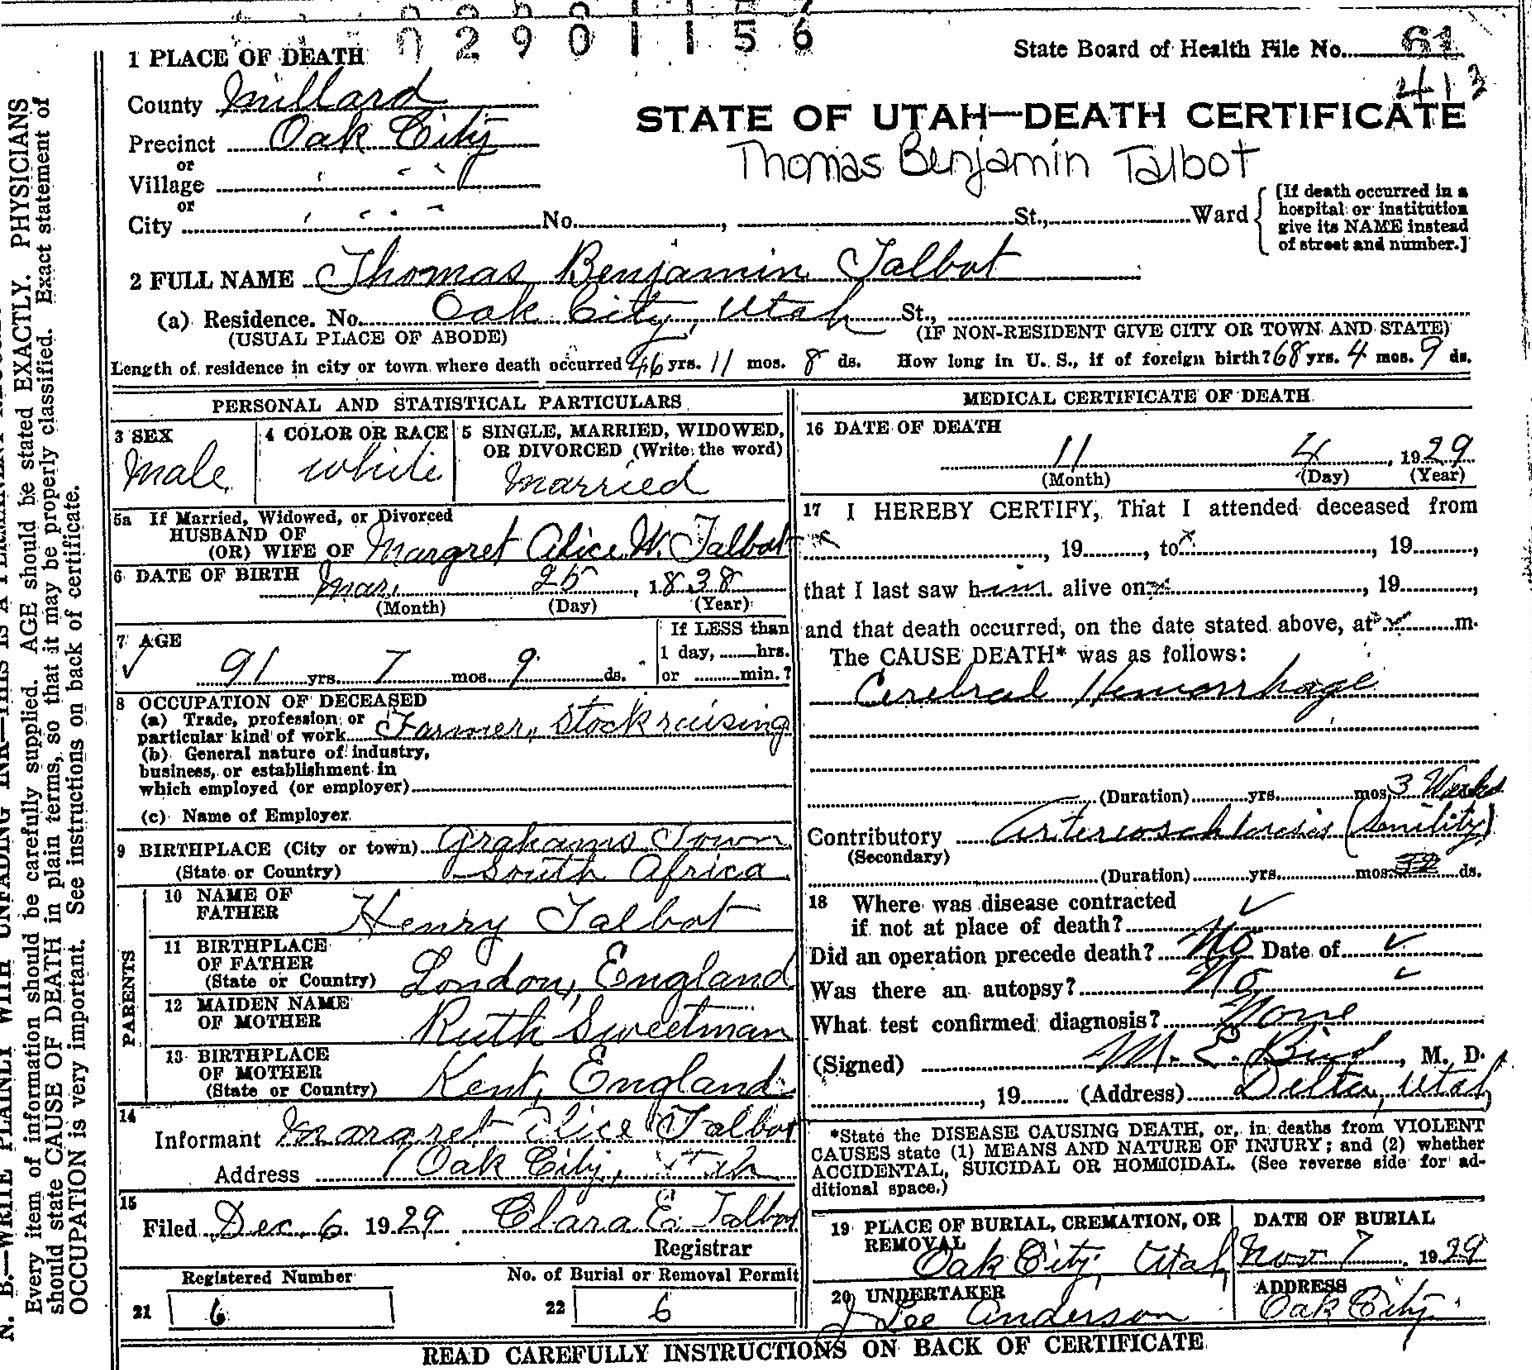 0290 1156
State Board of Health File No. 61
413
1 PLACE OF DEATH
County Millard
Precinct Oak City
or
Village
or
City No. , St., Ward
STATE OF UTAH—DEATH CERTIFICATE
Thomas Benjamin Talbot
[If death occurred in a
hospital or institution
give its NAME instead
of street and number.]
2 FULL NAME Thomas Benjamin Talbot
(a) Residence. No. Oak City, Utah St.,
(USUAL PLACE OF ABODE) (IF NON-RESIDENT GIVE CITY OR TOWN AND STATE)
Length of residence in city or town where death occurred 46 yrs. 11 mos. 8 ds. How long in U. S., if of foreign birth? 68 yrs. 4 mos. 9 ds.
PERSONAL AND STATISTICAL PARTICULARS
3 SEX
Male
4 COLOR OR RACE
White
5 SINGLE, MARRIED, WIDOWED,
OR DIVORCED (Write the word)
Married
5a If Married, Widowed, or Divorced
HUSBAND OF
(OR) WIFE OF Margret Alice W. Talbot
6 DATE OF BIRTH Mar. 25, 1838
(Month) (Day) (Year)
7 AGE
91 yrs. 7 mos. 9 ds.
If LESS than
1 day, hrs.
or min.?
8 OCCUPATION OF DECEASED
(a) Trade, profession or
particular kind of work Farmer, Stockraising
(b) General nature of industry,
business, or establishment in
which employed (or employer)
(c) Name of Employer
9 BIRTHPLACE (City or town) Grahams Town
(State or Country) South Africa
PARENTS
10 NAME OF
FATHER Henry Talbot
11 BIRTHPLACE
OF FATHER
(State or Country) London, England
12 MAIDEN NAME
OF MOTHER Ruth Sweetman
13 BIRTHPLACE
OF MOTHER
(State or Country) Kent, England
14
Informant Margret Alice Talbot
Address Oak City, Utah
15
Filed Dec. 6 1929 Clara E. Talbot
Registrar
Registered Number
21 6
No. of Burial or Removal Permit
22 6
MEDICAL CERTIFICATE OF DEATH
16 DATE OF DEATH
11 4, 1929
(Month) (Day) (Year)
17 I HEREBY CERTIFY, That I attended deceased from
x , 19 , to x , 19 ,
that I last saw him alive on x , 19 ,
and that death occurred, on the date stated above, at x m.
The CAUSE DEATH* was as follows:
Cerebral Hemorrhage
(Duration) yrs. mos. 3 Weeks
Contributory Arterioschlerosis (Senility)
(Secondary)
(Duration) yrs. mos. ds.
18 Where was disease contracted
if not at place of death? ✓
Did an operation precede death? No Date of ✓
Was there an autopsy? No ✓
What test confirmed diagnosis? None
(Signed) M. E. Bird, M. D.
, 19 (Address) Delta, Utah
*State the DISEASE CAUSING DEATH, or, in deaths from VIOLENT
CAUSES state (1) MEANS AND NATURE OF INJURY; and (2) whether
ACCIDENTAL, SUICIDAL OR HOMICIDAL. (See reverse side for ad-
ditional space.)
19 PLACE OF BURIAL, CREMATION, OR
REMOVAL
Oak City, Utah
DATE OF BURIAL
Nov 7, 1929
20 UNDERTAKER
J Lee Anderson
ADDRESS
Oak City.
READ CAREFULLY INSTRUCTIONS ON BACK OF CERTIFICATE
N. B.—WRITE PLAINLY WITH UNFADING INK—THIS IS A PERMANENT
Every item of information should be carefully supplied. AGE should be stated EXACTLY. PHYSICIANS
should state CAUSE OF DEATH in plain terms, so that it may be properly classified. Exact statement of
OCCUPATION is very important. See instructions on back of certificate.